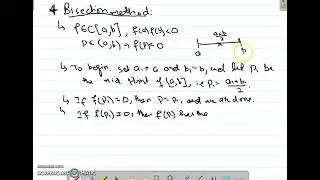 4 Bisection method:
↳ f∈C[a,b], f(a)f(b)<0
p∈(a,b) → f(p)=0
a+b/2
a b
↳ To begin, set a₁ = a and b₁ = b, and let p₁ be
the mid point of [a,b], i.e p₁ = a+b/2
↳ If f(p₁)=0, then p=p₁, and we are done.
↳ If f(p₁)≠0, then f(p₁) has the